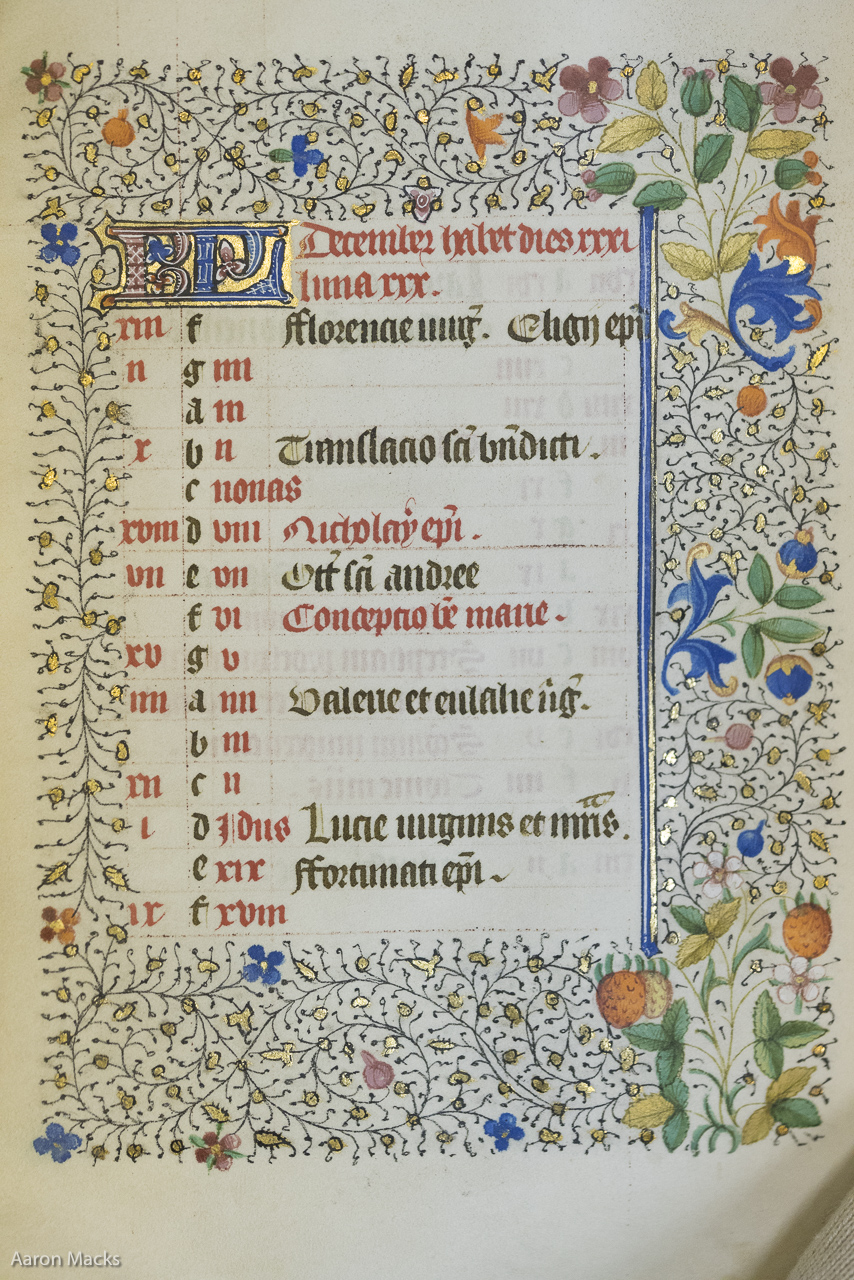 KL December habet dies xxxi
luna xxx.
xiii f fflorencie uirg̃. Eligij ep̃i
ii g iiii
a iii
x b ii Translacio sc̃i bñdicti.
c nonas
xviii d viii Nicholaÿ ep̃i.
vii e vii Oct̃ sc̃i andree
f vi Concepcio bẽ marie.
xv g v
iiii a iiii Valerie et eulalie ũg̃.
b iii
xii c ii
i d Jdus Lucie uirginis et mr̃is.
e xix ffortunati ep̃i.
ix f xviii
Aaron Macks